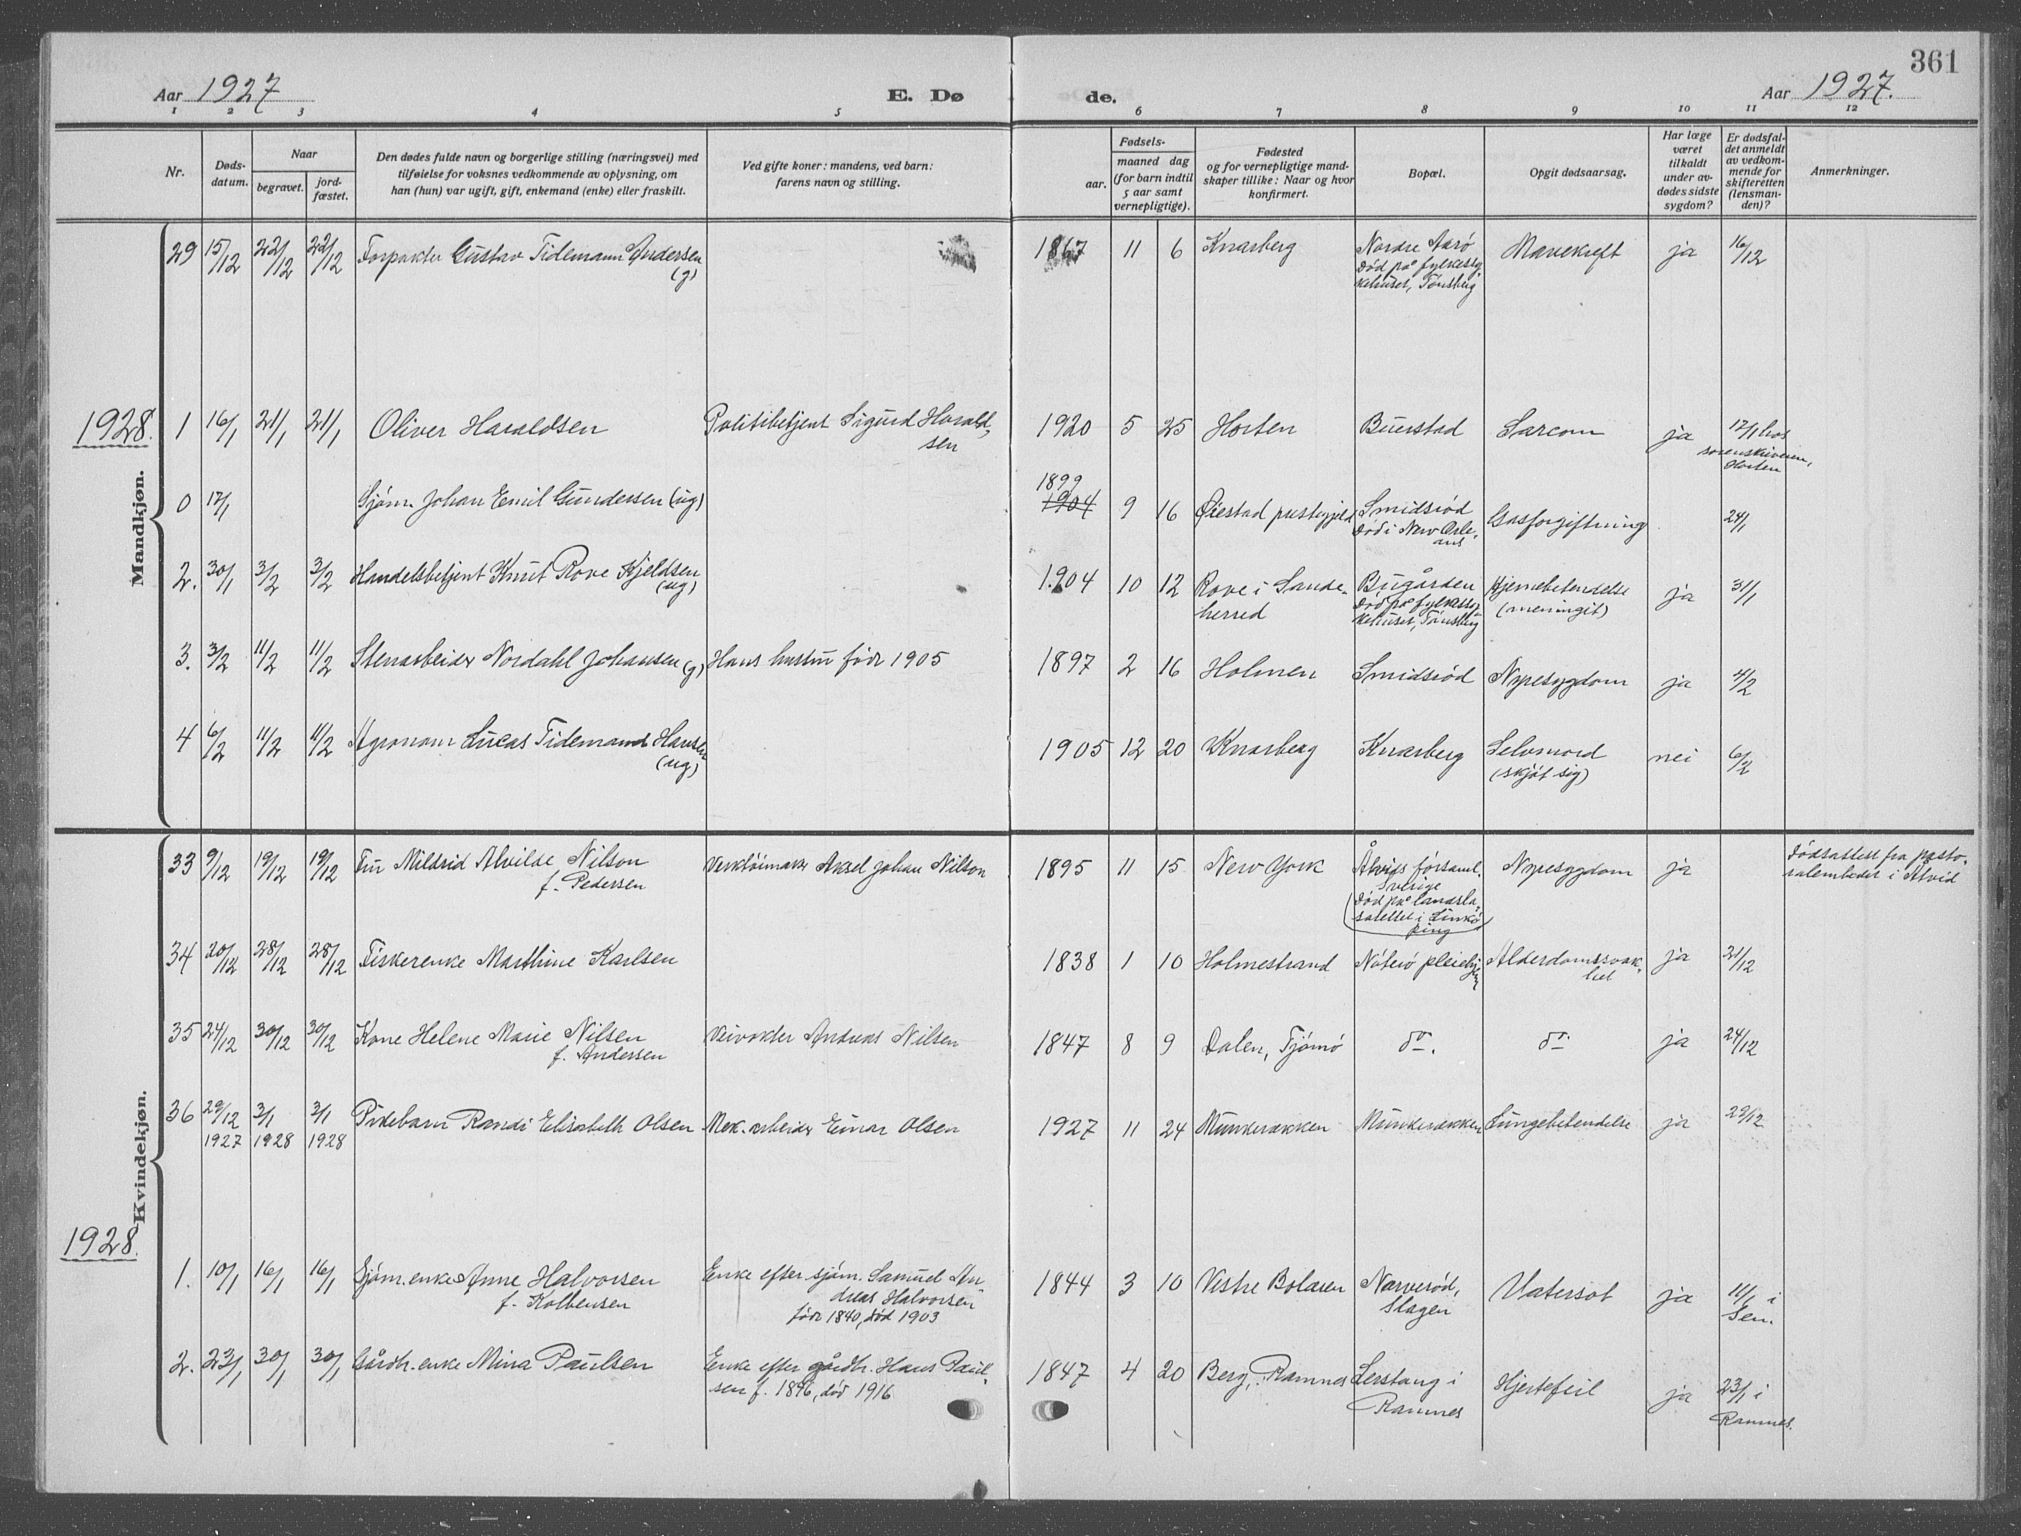 361
Aar 1927
E. Dø
de.
Aar 1927.
1 2 3 4 5 6 7 8 9 10 11 12
Nr.
Døds-
datum.
Naar
begravet.
jord-
fæstet.
Den dødes fulde navn og borgerlige stilling (næringsvei) med
tilføielse for voksnes vedkommende av oplysning, om
han (hun) var ugift, gift, enkemand (enke) eller fraskilt.
Ved gifte koner: mandens, ved barn:
farens navn og stilling.
Fødsels-
aar.
maaned dag
(for barn indtil
5 aar samt
vernepligtige).
Fødested
og for vernepligtige mand-
skaper tillike: Naar og hvor
konfirmert.
Bopæl.
Opgit dødsaarsag.
Har læge
været
tilkaldt
under av-
dødes sidste
sygdom?
Er dødsfal-
det anmeldt
av vedkom-
mende for
skifteretten
(lensman-
den)?
Anmerkninger.
Mandkjøn.
29 15/12 22/12 22/12 Forpakter Gustav Tidemann Andersen
(g)
1867 11 6 Knarberg
Nordre Aarø
død på fylkessy-
kehuset, Tønsberg
Mavekreft ja 16/12
1928.
1 16/1 21/1 21/1 Oliver Haraldsen
Politibetjent Sigurd Harald-
sen
1920 5 25 Horten Buerstad Sarcom ja
17/1 hos
sorenskriveren,
Horten
0 17/1 Sjøm. Johan Emil Gundersen (ug)
1899
1904 9 16 Øiestad prestegjeld
Smidsrød
død i New Orle-
ans
Gasforgiftning 24/1
2. 30/1 3/2 3/2 Handelsbetjent Knut Rove Kjeldsen
(ug)
1904 10 12 Rove i Sande-
herred
Bugården
død på fylkessy-
kehuset, Tønsberg
Hjernebetendelse
(meningit)
ja 31/1
3. 3/2 11/2 11/2 Stenarbeider Nordahl Johansen (g) Hans hustru født 1905
1897 2 16 Holmen Smidsrød Nyresygdom ja 4/2
4 6/2 11/2 11/2 Agronom Lucas Tidemand Hansen
(ug)
1905 12 20 Knarberg Knarberg Selvmord
(skjøt sig)
nei 6/2
Kvindekjøn.
33 9/12 19/12 19/12 Fru Mildrid Alvilde Nilson
f. Pedersen
Verktøimaker Aksel Johan Nilson
1895 11 15 New York
Åtvids församl.
Sverige
(død på landsla-
sarettet i Linkö-
ping)
Nyresygdom ja
Dødsattest fra pasto-
ralembedet i Åtvid
34 20/12 28/12 28/12 Fiskerenke Marthine Karlsen
1838 1 10 Holmestrand Nøterø pleiehjem Alderdomssvak-
het
ja 21/12
35 24/12 30/12 30/12 Kone Helene Marie Nilsen
f. Andersen
Veivokter Andreas Nilsen
1847 8 9 Dalen, Tjømø do. do. ja 24/12
36 29/12 3/1 3/1 Pikebarn Randi Elisabeth Olsen Mek. arbeider Einar Olsen
1927 1928 1928
1927 11 24 Munkerækken Munkerækken Lungebetendelse ja 29/12
1928.
1. 10/1 16/1 16/1 Sjøm. enke Anne Halvorsen
f. Kolbensen
Enke efter sjøm. Samuel An-
dreas Halvorsen
født 1840, død 1903
1844 3 10 Vestre Bolæren Narverød,
Slagen
Vatersot ja 11/1 i
Sem.
2. 23/1 30/1 30/1 Gårdbr. enke Mina Paulsen
Enke efter gårdbr. Hans Paul-
sen f. 1846, død 1916
1847 4 20 Berg, Ramnes Lerstang i
Ramnes
Hjertefeil ja 23/1 i
Ramnes.